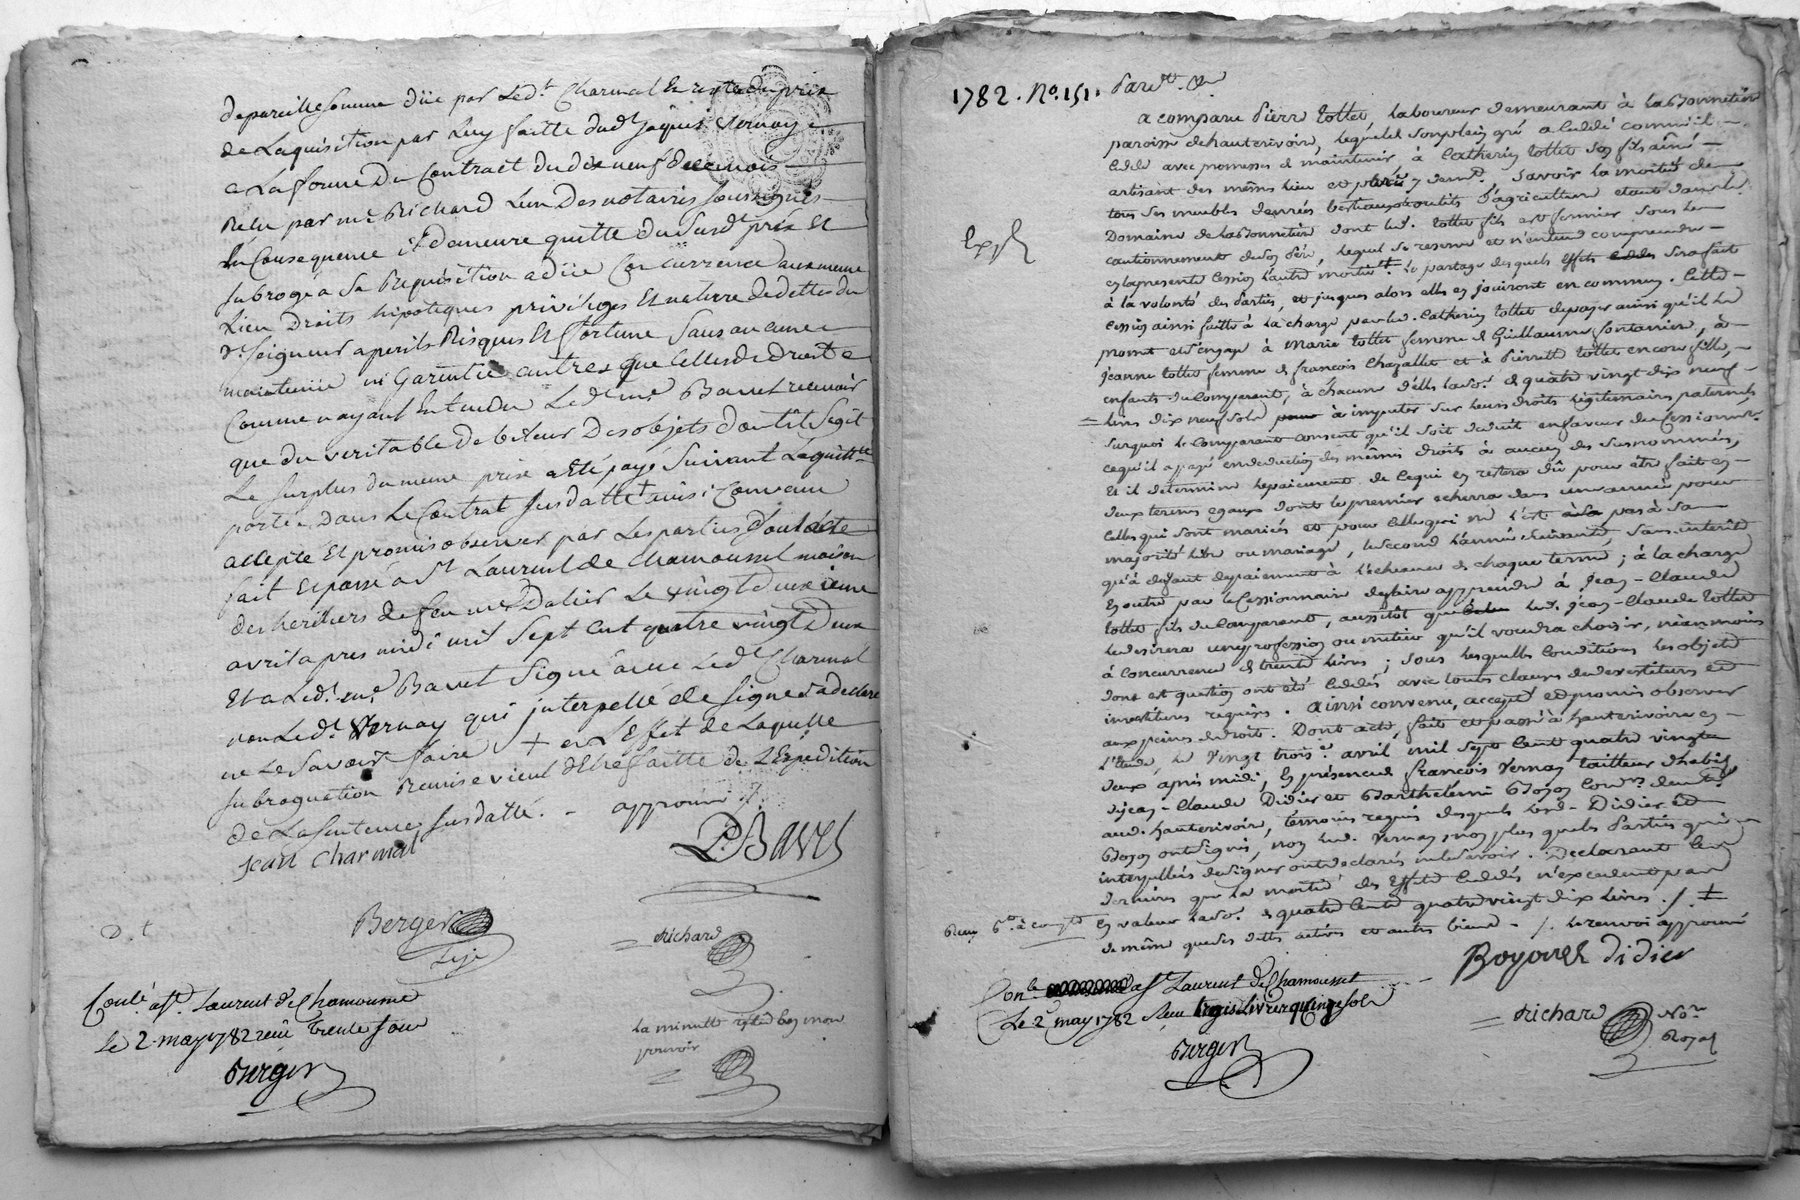 de pareille somme düe par Ledt. Charmal En reste du prix
de Laquisition par Luy faitte dudt jaques Vernay
a La forme Du Contract du dix neuf de ce mois
Reçu par me. Richard L'un Des notaires soussignés
En Consequence il demeure quitte du susdt prix Et
subrogé a sa Requisition a düe Concurrence aux meme
Lieu Droits hipoteques privileges Et nature de dettes du
dt. Seigneur a perils Risques Et fortune sans aucune
maintenüe ni Garentie autres que Celles de Droit
Comme n'ayant Entendu Ledt me. Bavet recevoir
que du veritable debiteur Des objets dont il S'agit
Le surplus du meme prix a Eté payé suivant La quittce
portée Dans Le Contrat susdatté + ainsi Convenu
accepté Et promis observer par Les parties Dont acte
fait Et passé a St Laurent de Chamousset maison
des heritiers de feu me Dalier Le vingt deuxieme
avril apres midi mil Sept Cent quatre vingt Deux
Et a Ledt. me. Bavet Signé avec Ledt Charmal
non Ledt Vernay qui jnterpellé de signer a declaré
ne Le Savoir faire + en L'Effet de Laquelle
subrogation Remise vient d'Etre faitte de L'Expedition
de La Sentence susdatté. - approuvé
Jean Charmal
P. Bavet
Berger
Richard
Conlé. a St. Laurent de Chamousset
Le 2. may 1782 reçu trente sous
Berger
La minutte restée en mon
pouvoir
1782. No. 151. Pardt. &
a comparu Pierre tottet, laboureur demeurant à la Bonnetiere
paroisse de hauterivoire, lequel de son plein gré a Ceddé comme il
Cedde avec promesses de maintenir à Catherin tottet son fils aîné
artisant des mêmes lieu et paroisse y demt. Savoir la moitié de
tous ses meubles denrées bestiaux et outils d'agriculture etant dans le
Domaine de la Bonnetiere dont led. tottet fils est fermier sous le
cautionnement du son Père, lequel se reserve et n'entend comprendre
en la presente Cession l'autre moitié + Le partage desquels Effets sera fait
à la volonté des Parties, et jusques alors elles en jouiront en commun. Cette
Cession ainsi faitte à la charge par led. Catherin tottet de payer ainsi qu'il le
promet et s'engage à Marie tottet femme de Guillaume fontanier, à
Jeanne tottet femme de françois Chazallet et à Pierrette tottet encore fille,
enfants du Comparant, à chacune d'elles la so. de quatre vingt dix neuf
livres dix neuf sols à imputer sur leurs droits légitimaires paternels
surquoi le Comparant consent qu'il soit deduit en faveur du Cessionnre.
ce qu'il a payé en deduction des mêmes droits à aucun des susnommées,
Et il determine le paiement de Ce qui en restera dû pour être fait en
deux termes egaux dont le premier echerra dans une année pour
Celles qui sont mariées et pour Celle qui ne l'est pas à sa
majorité libre ou mariage, le second l'année suivante, sans interêts
qu'à defaut de paiement à l'echeance de chaque terme; à la charge
En outre par le Cessionnaire de faire apprendre à Jean-Claude
tottet fils du Comparant, aussitôt que led. Jean-Claude tottet
le desirera une profession ou métier qu'il voudra choisir, néanmoins
à concurrence de trente livres; sous lesquelles Conditions les objets
dont est question ont été Ceddés avec toutes clauses de devestiture et
investiture requises. Ainsi convenu, accepté et promis observer
aux peines de droit. Dont acte, fait et passé à hauterivoire en
l'Etude, le vingt trois. avril mil sept Cent quatre vingt
deux après midi, En présence de françois Vernay tailleur d'habits
de Jean-Claude Didier et Barthelemi Boyon Cordrs. demts.
aud. hauterivoire, témoins requis desquels led. Didier et
Boyon ont signés, non led. Vernay non plus que les Parties qui
interpellées de signer ont declarés ne le savoir. Declarant les
dernieres que la moitié des Effets Ceddés n'excedent pas
En valeur la so. de quatre Cents quatre vingt dix livres. /. +
de même que des dettes actives et autres biens - /. le renvoi approuvé
Boyon Didier
Conlé a St Laurent de Chamousset
Le 2 may 1782 Reçu trois Livres quinze sols
Berger
Richard Nore
Royal